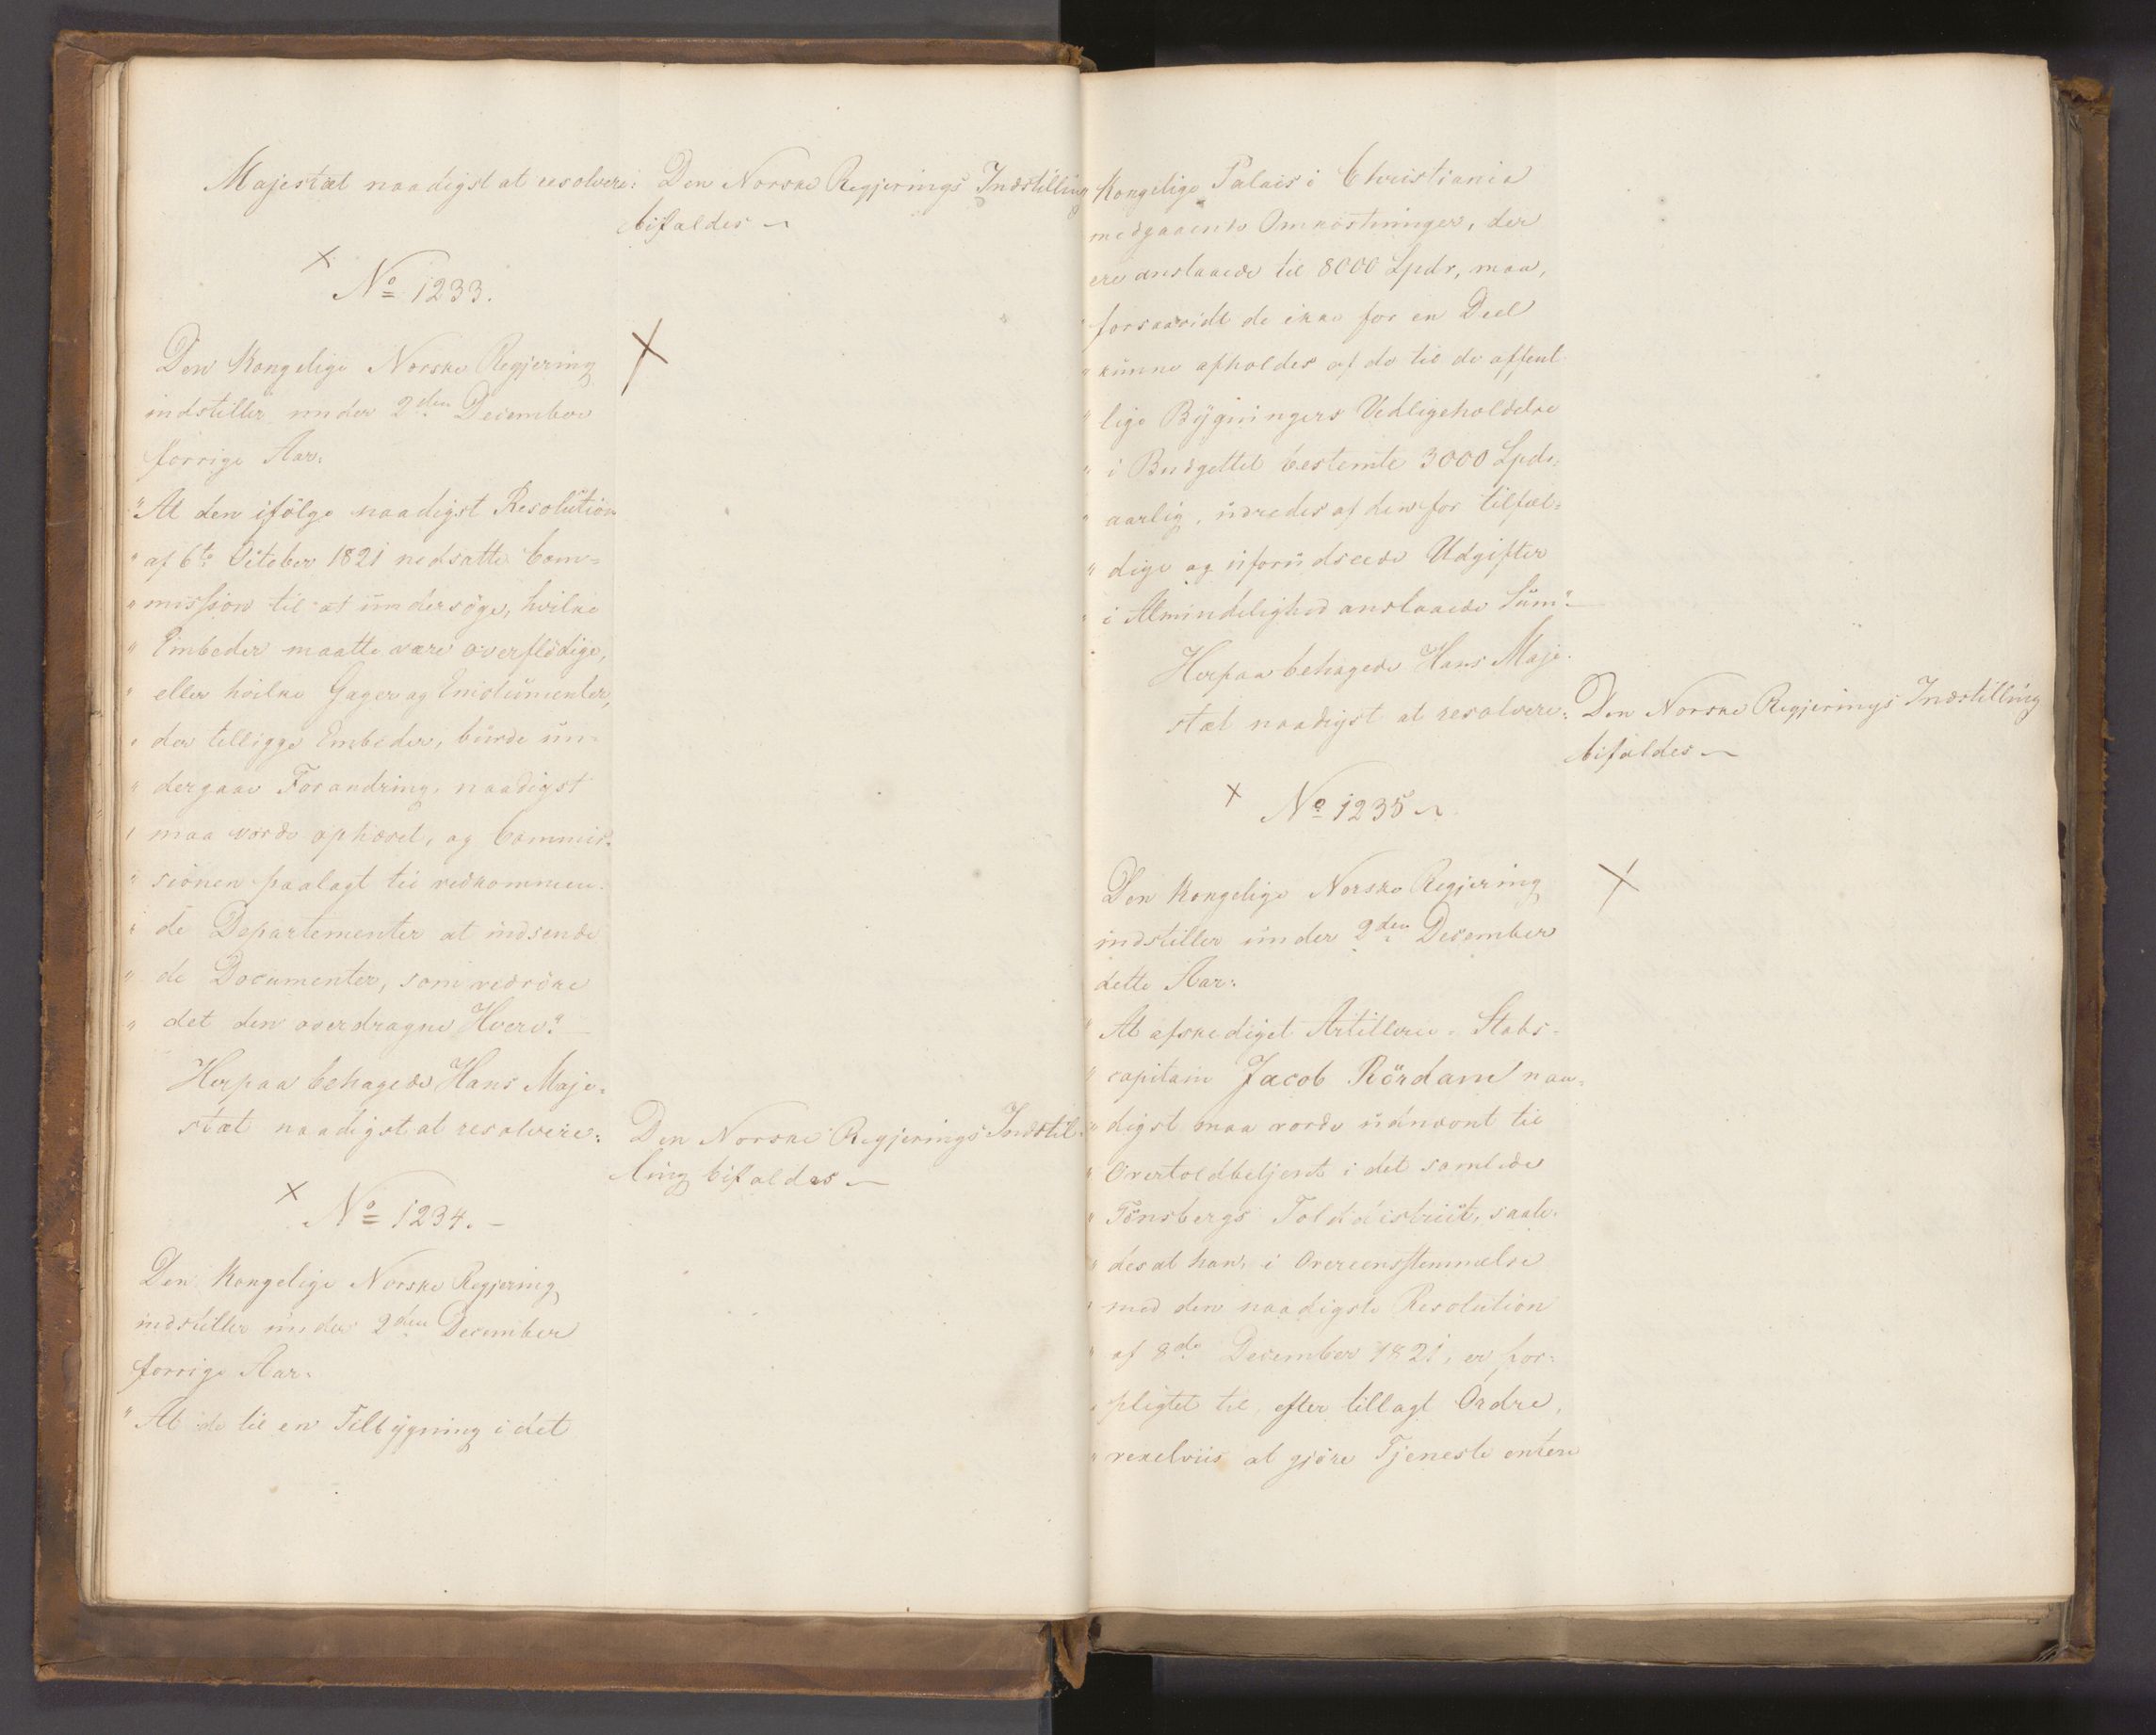 Majestæt naadigst at resolvere: Den Norske Regjerings Indstilling
bifaldes
No 1233.
Den Kongelige Norske Regjering
indstiller under 2den December
forrige Aar:
"At den ifölge naadigst Resolution
" af 6te October 1821 nedsatte Com=
" mission til at undersöge, hvilke
" Embeder maatte være overflödige,
" eller hvilke Gager og Emolumenter,
" der tillægge Embeder, burde un=
" dergaae Forandring, naadigst
" maa vorde ophævet, og Commis=
" sionen paalagt til vedkommen=
" de Departementer at indsende
" de Documenter, som vedröre
" det den overdragne Hverv."
Herpaa behagede Hans Maje=
stæt naadigst at resolvere:
Den Norske Regjerings Indstil=
ling bifaldes
No 1234.
Den Kongelige Norske Regjering
indstiller under 2den December
forrige Aar:
"At de til en Tilbygning i det
Kongelige Palais i Christiania
medgaaende Omkostninger, der
ere anslaaede til 8000 Spdr, maa,
forsaavidt de ikke for en Deel
" kunne afholdes af de til de offent
" lige Bygningers Vedligeholdelse
" i Budgettet bestemte 3000 Spdr:
" aarlig, udredes af den for tilfæl=
" dige og uforudseede Udgifter
" i Almindelighed anslaaede Sum"
Herpaa behagede Hans Maje=
stæt naadigst at resolvere:
Den Norske Regjerings Indstilling
bifaldes
No 1235
Den Kongelige Norske Regjering
indstiller under 2den December
dette Aar:
" At afskediget Artillerie=Stabs=
" capitain Jacob Rördam naa=
" digst maa vorde udnævnt til
" Overtoldbetjent i det samlede
" Tönsbergs Tolddistrict, saale=
" des at han, i Overeensstemmelse
" med den naadigste Resolution
" af 8de December 1821, er for=
" pligtet til, efter tillagt Ordre,
" vexelviis at gjöre Tjeneste enten